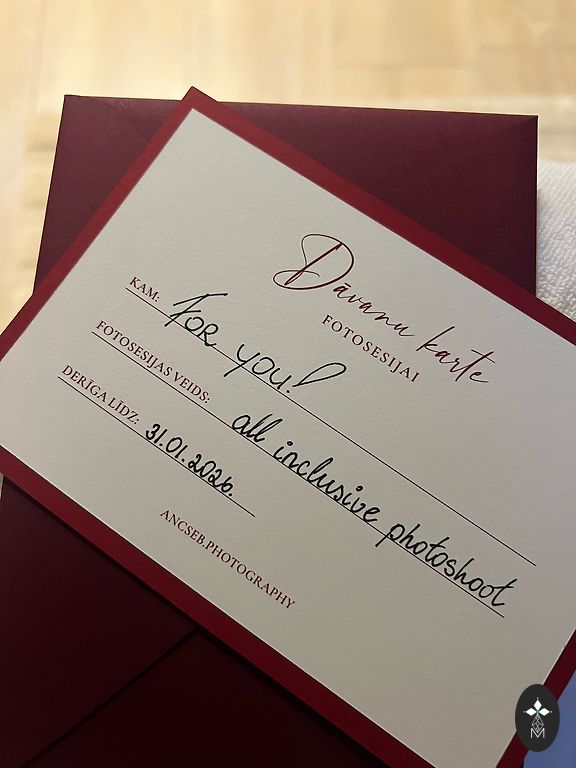 Dāvanu karte
FOTOSESIJAI
KAM: For you!
FOTOSESIJAS VEIDS: all inclusive photoshoot
DERĪGA LĪDZ: 31.01.2026.
ANCSEB.PHOTOGRAPHY
M